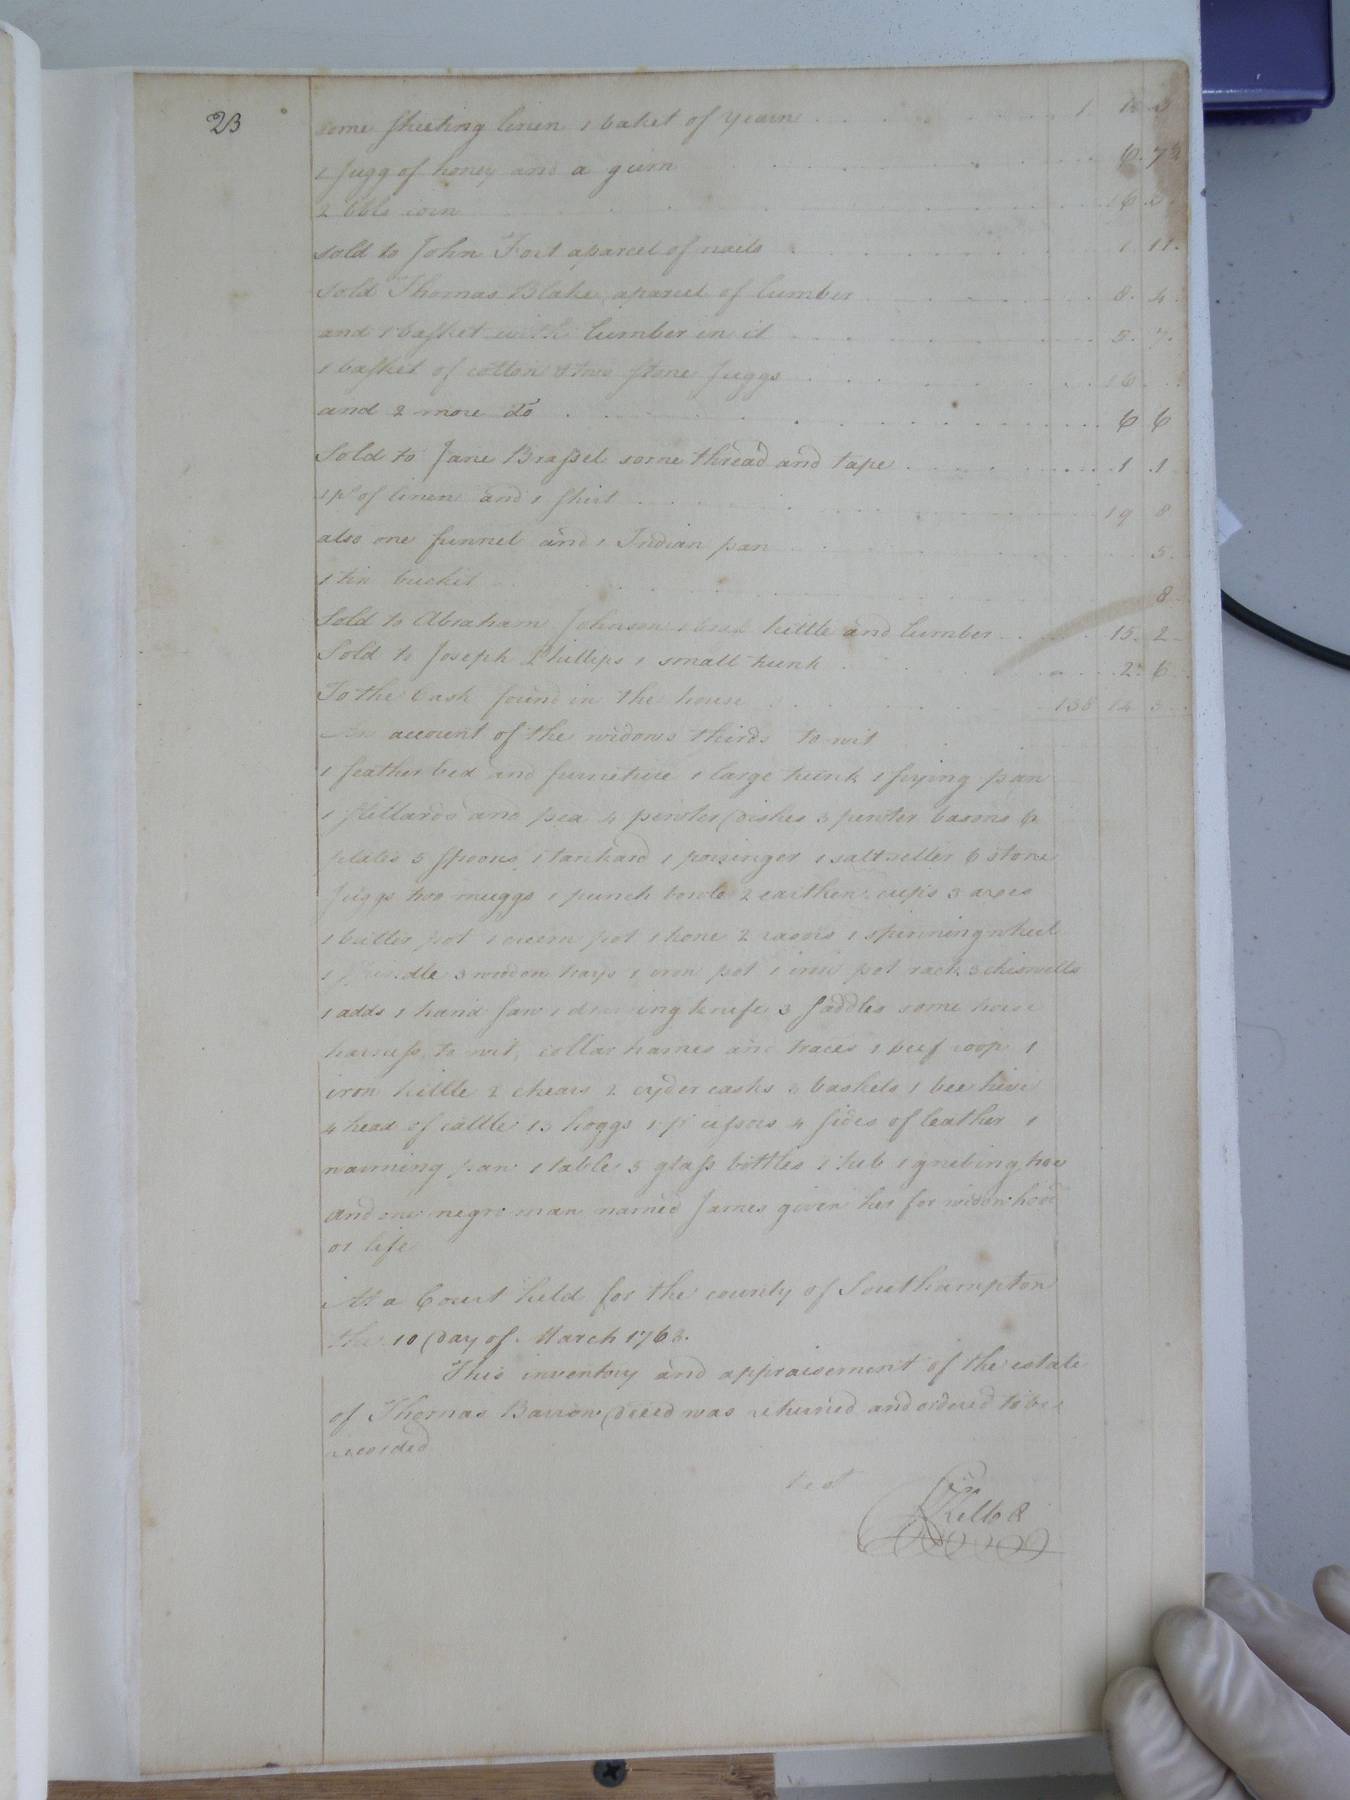 23
some sheeting linen 1 basket of yearn 1
1 Jugg of honey and a gum 6. 7½
2 bbls corn 16
sold to John Fort aparcel of nails 1. 11.
Sold Thomas Blake aparcel of lumber 8. 4.
and 1 basket with lumber in it 5. 7.
1 basket of cotton & two stone Juggs 16
and 2 more do 6 6
Sold to Jane Brassel some thread and tape 1 .1
1 ps of linen and 1 shirt 19 8
also one funnel and 1 Indian pan 5.
1 tin bucket 8
Sold to Abraham Johnson 1 kettle and lumber 15. 2
Sold to Joseph Phillips 1 small trunk 2. 6
To the Cash found in the house 14
An account of the widows thirds to wit
1 feather bed and furniture 1 large trunk 1 frying pan
1 stillards and pea 4 pewter dishes 3 pewter basons 6
plates 5 spoons 1 tankard 1 porringer 1 saltseller 6 stone
Juggs two muggs 1 punch bowle 2 earthen cups 3 axes
1 butter pot 1 cream pot 1 hone 2 rasors 1 spinning wheel
1 3 wooden trays 1 iron pot 1 iron pot rack 3 chiswells
1 adds 1 hand saw 1 drawing knife 3 saddles some horse
harness to wit, collar hames and traces 1
iron kettle 2 chears 2 cyder casks 3 baskets 1 bee hive
4 head of cattle 13 hoggs 1 pr 4 sides of leather 1
warming pan 1 table 5 glass bottles 1 tub 1 grubing hoe
and one negro man named James given her for widowhood
or life
At a Court held for the county of Southampton
the 10 day of March 1763.
This inventory and appraisement of the estate
of Thomas Barrow deced was returned and ordered to be
recorded
test